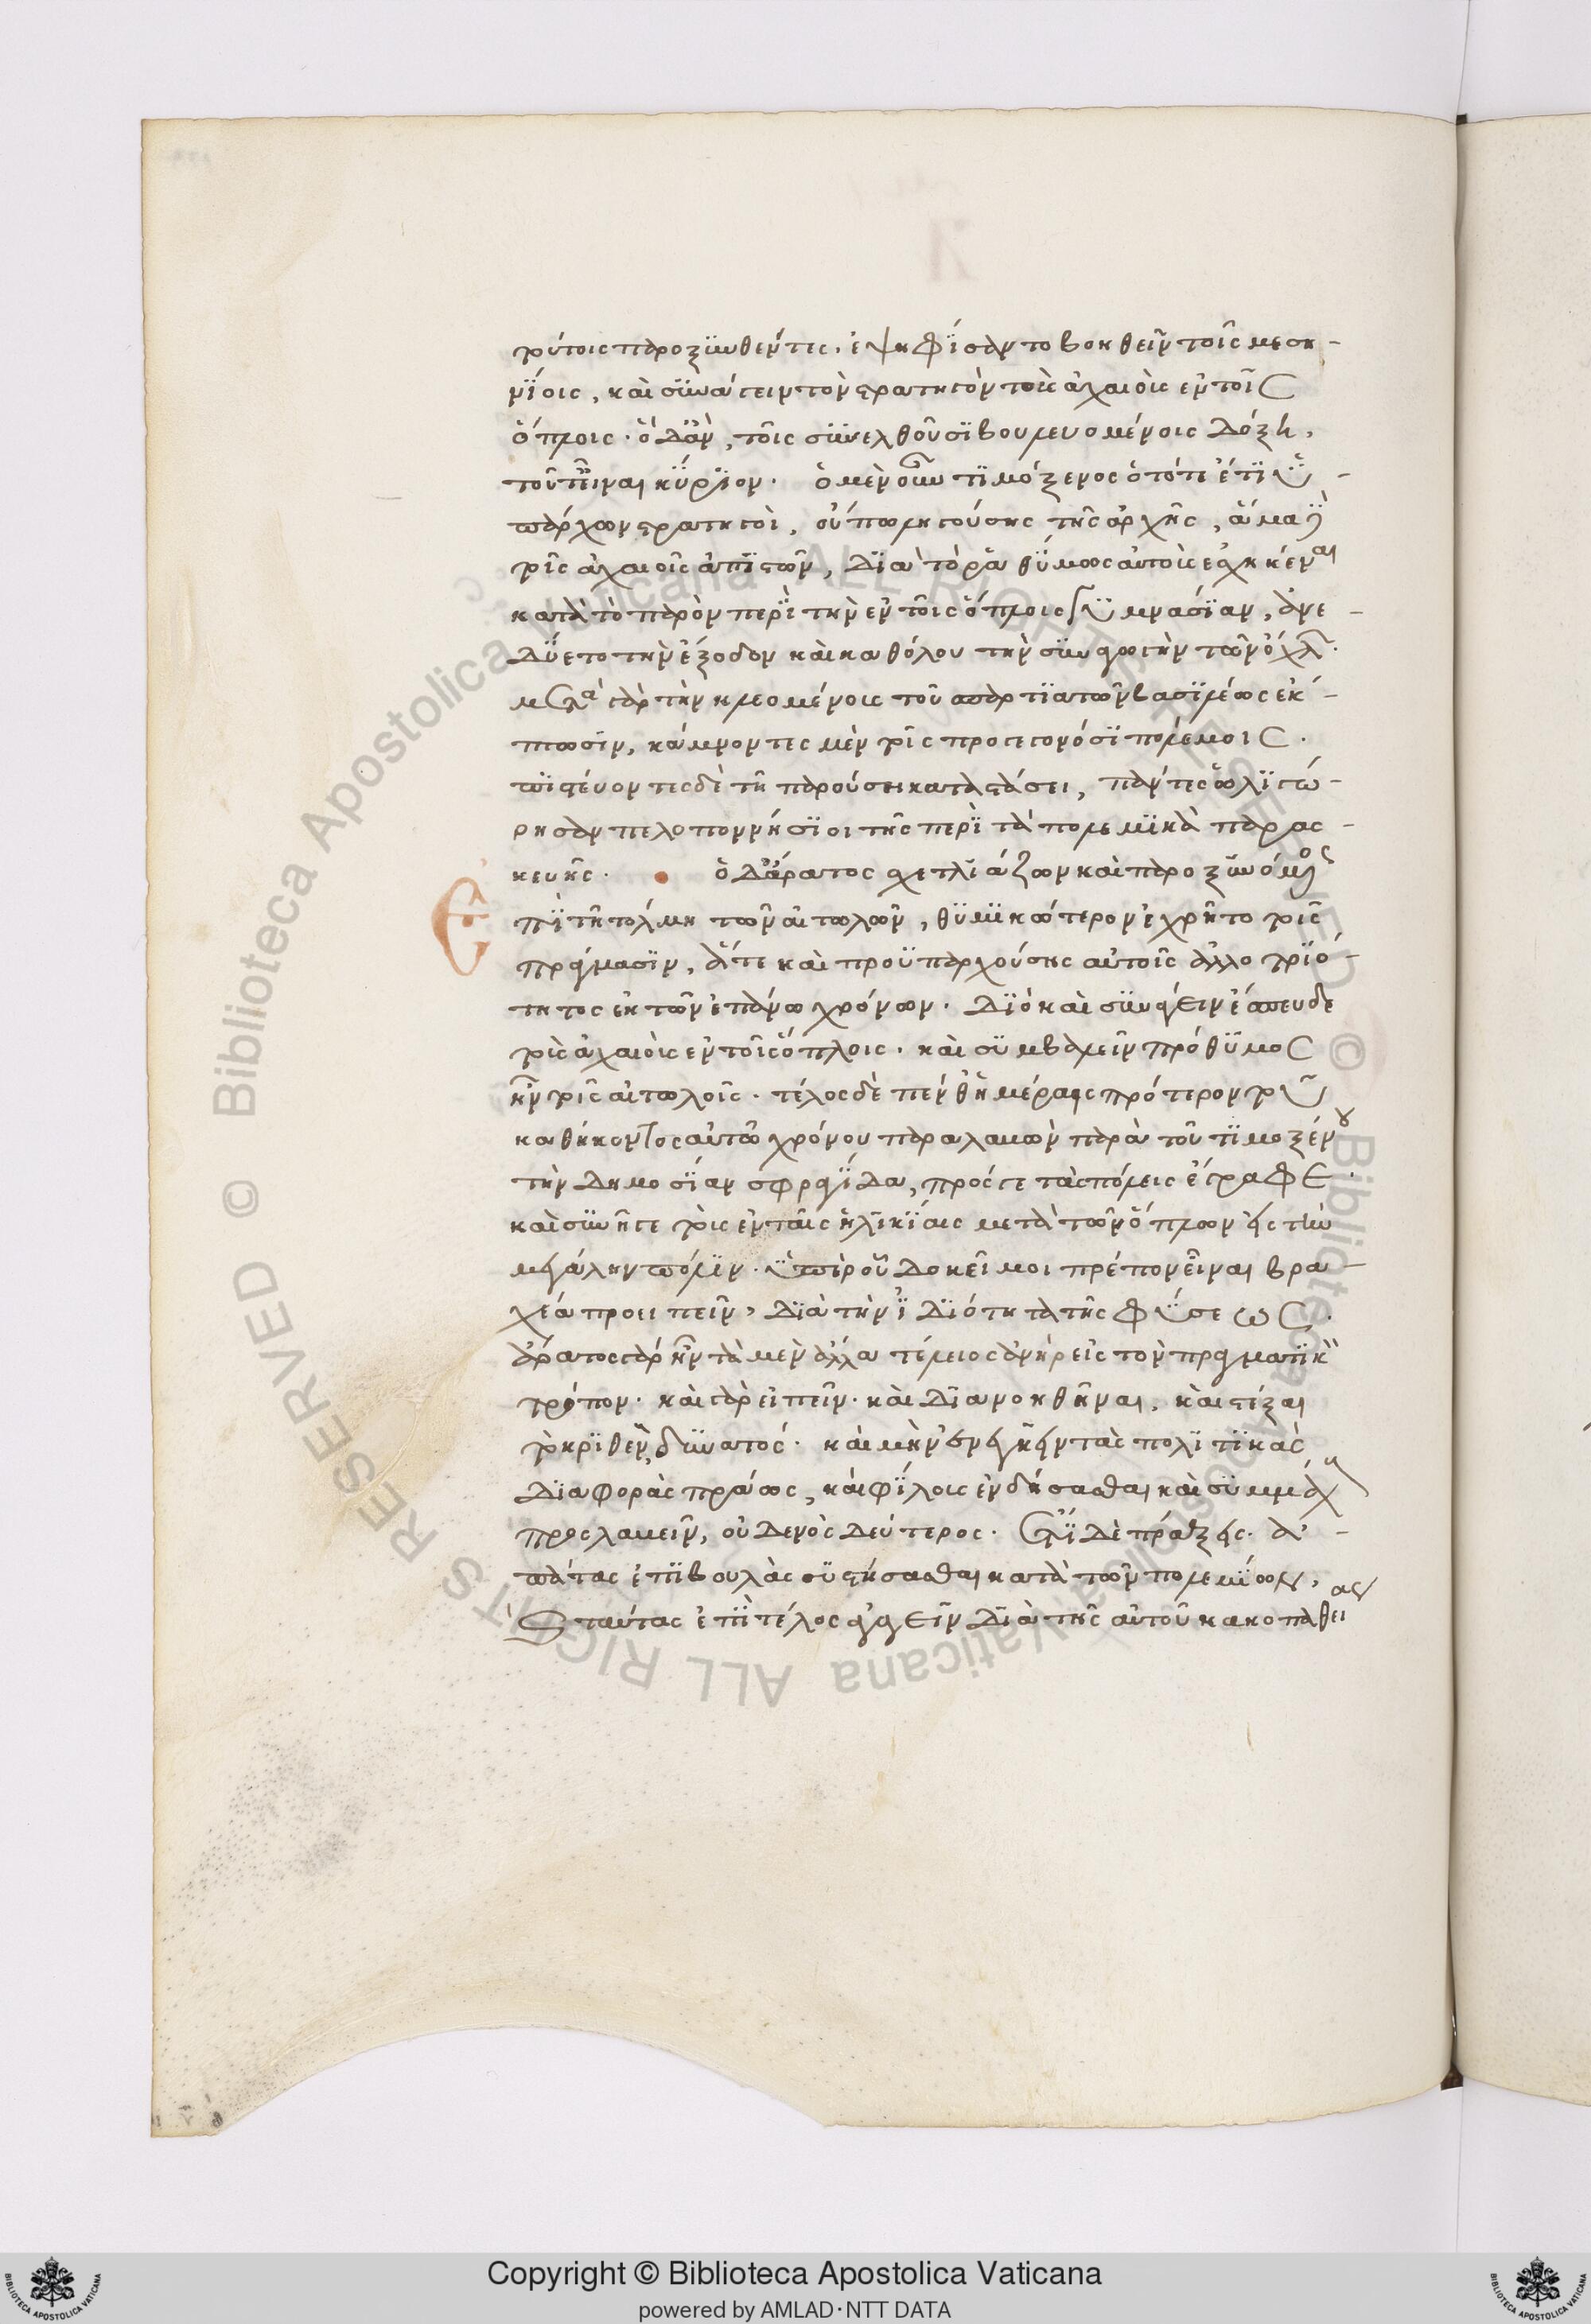 τούτοις παροξυνθέντες. ἐψηφίσαντο βοηθεῖν τοῖς μεση-
νίοις, καὶ συνάγειν τὸν στρατηγὸν τοὺς ἀχαιοὺς ἐν τοῖς
ὅπλοις. ὃ δ' ἂν, τοῖς συνελθοῦσι βουλευομένοις δόξη,
τοῦτ' εἶναι κύριον. ὁ μὲν οὖν τιμόξενος ὁ τότε ἔτι ὑ-
πάρχων στρατηγὸς, οὔπω ληγούσης τῆς ἀρχῆς, ἅμα δὲ
τοῖς ἀχαιοῖς ἀπιστῶν, διὰ τὸ ῥαθύμως αὐτοὺς ἐσχηκέναι
κατὰ τὸ παρὸν περὶ τὴν ἐν τοῖς ὅπλοις γυμνασίαν, ἀνε-
δύετο τὴν ἔξοδον καὶ καθόλου τὴν συναγωγὴν τῶν ὄχλων.
μετὰ γὰρ τὴν κλεομένους τοῦ σπαρτιατῶν βασιλέως ἔκ-
πτωσιν, κάμνοντες μὲν τοῖς προγεγονόσι πολέμοις.
πιστεύοντες δὲ τῆ παρούση καταστάσει, πάντες ὠλιγώ-
ρησαν πελοποννήσιοι τῆς περὶ τὰ πολεμικὰ παρας-
κευῆς. ὁ δ' ἄρατος σχετλιάζων καὶ παροξυνόμενος
Ἐπὶ τῆ τόλμη τῶν αἰτωλῶν, θυμικώτερον ἐχρῆτο τοῖς
πράγμασιν, ἅτε καὶ προϋπαρχούσης αὐτοῖς ἀλλοτριό-
τητος ἐκ τῶν ἐπάνω χρόνων. διὸ καὶ συνάγειν ἔσπευδε
τοὺς ἀχαιοὺς ἐν τοῖς ὅπλοις. καὶ συμβαλεῖν πρόθυμος
ἦν τοῖς αἰτωλοῖς. τέλος δὲ πένθ' ἡμέραις πρότερον τοῦ
καθήκοντος αὐτῶ χρόνου παραλαβὼν παρὰ τοῦ τιμοξένου
τὴν δημοσίαν σφραγίδα, πρός τε τὰς πόλεις ἔγραφε.
καὶ συνῆγε τοὺς ἐν ταῖς ἡλικίαις μετὰ τῶν ὅπλων εἰς τὴν
μεγάλην πόλιν. ὑπὲρ οὗ δοκεῖ μοι πρέπον εἶναι βρα-
χέα προειπεῖν, διὰ τὴν ἰδιότητα τῆς φύσεως.
ἄρατος γὰρ ἦν τὰ μὲν ἄλλα τέλειος ἀνὴρ εἰς τὸν πραγματικὸν
τρόπον. καὶ γὰρ εἰπεῖν. καὶ διανοηθῆναι, καὶ στέξαι
τὸ κριθὲν, δυνατός. καὶ μὴν ἐνεγκεῖν τὰς πολιτικὰς
διαφορὰς πράως, καὶ φίλους ἐνδήσασθαι καὶ συμμάχους
προσλαβεῖν, οὐδενὸς δεύτερος. ἔτι δὲ πράξεις. ἀ-
πάτας ἐπιβουλὰς συστήσασθαι κατὰ τῶν πολεμίων,
καὶ ταύτας ἐπὶ τέλος ἀγαγεῖν διὰ τῆς αὐτοῦ κακοπαθείας
Copyright © Biblioteca Apostolica Vaticana
powered by AMLAD·NTT DATA